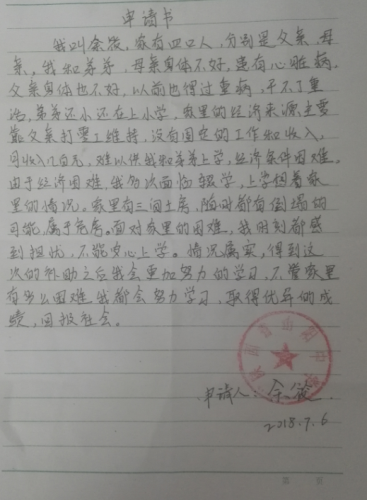 申请书
我叫余敏，家有四口人，分别是父亲，母
亲，我和弟弟，母亲身体不好，患有心脏病，
父亲身体也不好，以前也得过重病，干不了重
活，弟弟还小还在上小学，家里的经济来源主要
靠父亲打零工维持，没有固定的工作和收入，
月收入几百元，难以供我和弟弟上学，经济条件困难。
由于经济困难，我多次面临辍学，上学想着家
里的情况。家里有三间土房，随时都有倒塌的
可能，属于危房。面对家里的困难，我时刻都感
到担忧，不能安心上学。情况属实，得到这
次的补助之后我会更加努力的学习，不管家里
有多么困难我都会努力学习，取得优异的成
绩，回报社会。
申请人：余敏
2018.7.6
第 页